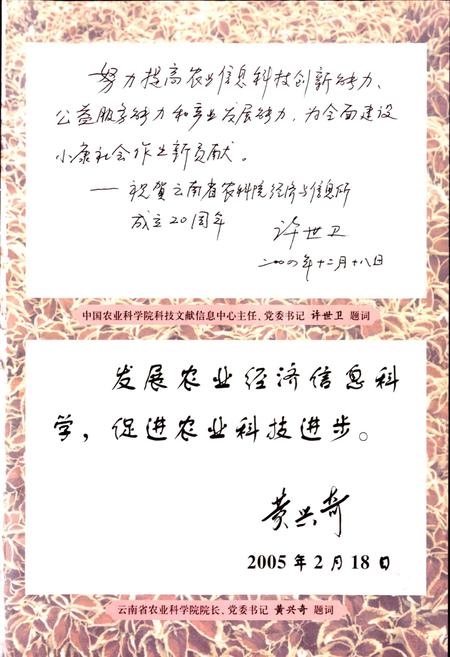 努力提高农业信息科技创新能力、
公益服务能力和产业发展能力，为全面建设
小康社会作出新贡献。
——祝贺云南省农科院经济与信息所
成立20周年
许世卫
二〇〇四年十二月十八日
中国农业科学院科技文献信息中心主任、党委书记 许世卫 题词
发展农业经济信息科
学，促进农业科技进步。
黄兴奇
2005年2月18日
云南省农业科学院院长、党委书记 黄兴奇 题词